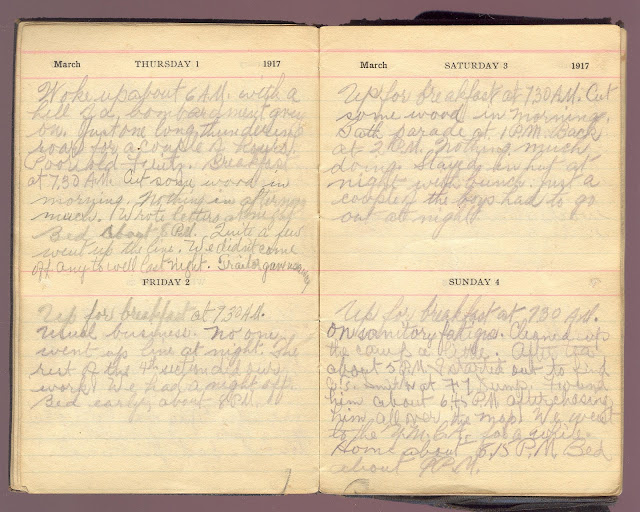 March THURSDAY 1 1917
Woke up about 6 A.M. with a
hell of a bombardment going
on. Just one long thundering
roar for a couple of hours.
Poor old Fritz. Breakfast
at 7.30 A.M. Cut some wood in
morning. Nothing in afternoon
much. Wrote letters at night
Bed about 8 P.M. Quite a few
went up the line. We didn't come
off any to well last night.
FRIDAY 2
Up for breakfast at 7.30 A.M.
Usual business. No one
went up line at night. The
rest of the 4th section did our
work. We had a night off.
Bed early about 8 P.M.
March SATURDAY 3 1917
Up for breakfast at 7.30 A.M. Cut
some wood in morning.
Bath parade at 1 P.M. Back
at 2 P.M. Nothing much
doing. Stayed in hut at
night with bunch. Just a
couple of the boys had to go
out at night.
SUNDAY 4
Up for breakfast at 7.30 A.M.
On sanitary fatigue. Cleaned up
the camp a little. After tea
about 5 P.M. I started out to find
Smith at Dump. Found
him about 6.45 P.M. after chasing
him all over the map. We went
to the Y.M.C.A. for a while.
Home about 8.15 P.M. Bed
about 9 P.M.